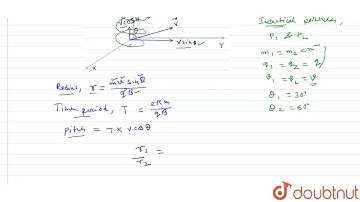 v cosθ
θ
v⃗
v sinθ
Y
X
Radius, r = mv sinθ / qB
Time period, T = 2πm / qB
pitch = T × v cosθ
r₁ / r₂ =
Identical particles,
P₁ & P₂
m₁ = m₂ = m
q₁ = q₂ = q
v₁ = v₂ = v
θ₁ = 30°
θ₂ = 60°
doubtnut